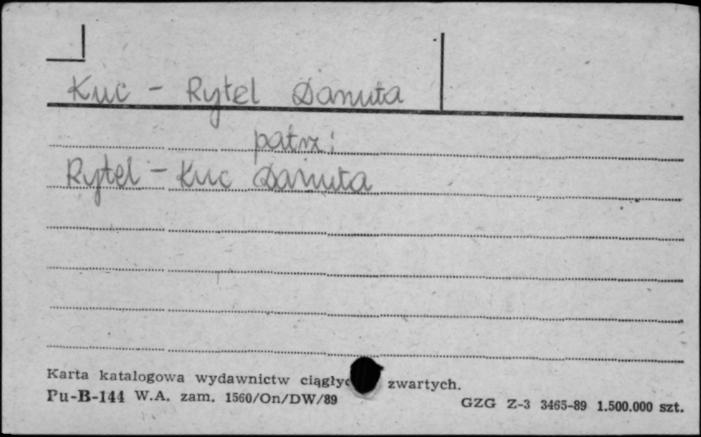 Kuc - Rytel Danuta
patrz:
Rytel - Kuc Danuta
Karta katalogowa wydawnictw ciągłyc zwartych.
Pu-B-144 W.A. zam. 1560/On/DW/89 GZG Z-3 3465-89 1.500.000 szt.